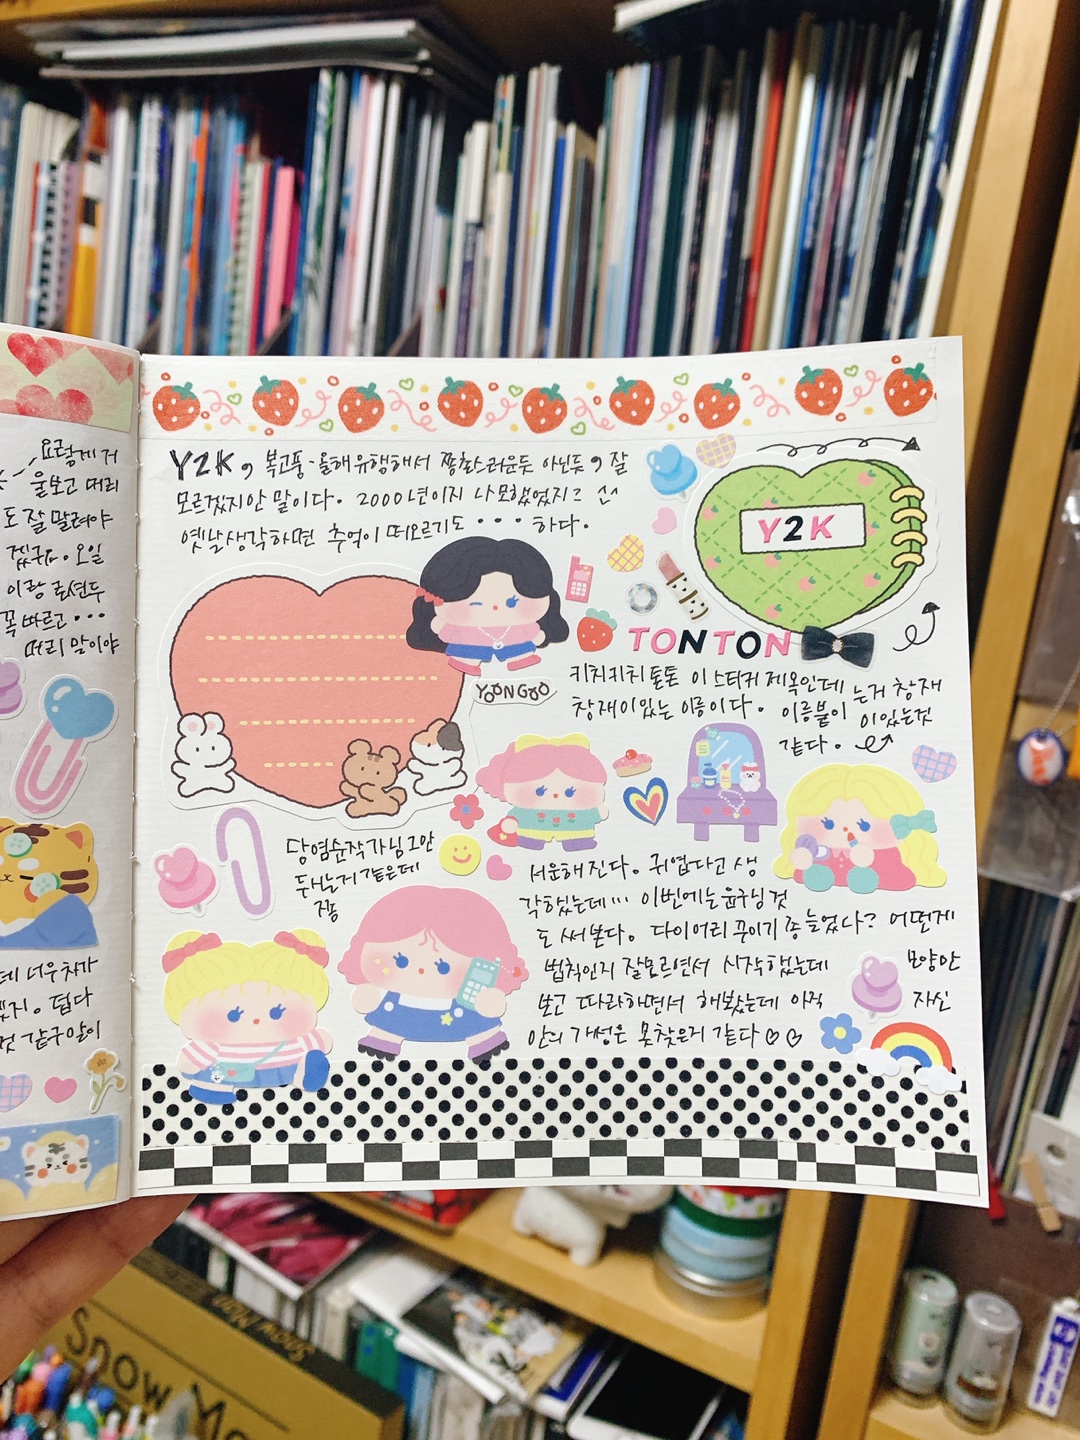 요렇게 거
울보고 머리
도 잘 말려야
겠구ㅏ. 오일
이랑 로션두
꼭 바르고 ...
머리 말이야
Y2K, 복고풍 - 올해유행해서 짱찰스러운두 아닌두, 잘
모르겠지만 말이다. 2000년이지 나뭇했었지?
옛날생각하면 추억이 떠오르기도 ... 하다.
Y2K
TONTON
YOONGOO
키치키치톤톤 이 스티커 제목인데
창재미있는 이름이다. 이름붙이는거 창재
미있는것
같다.
당염순작가님 그만
두시는거 같은데
쫌
서운해진다. 귀엽다고 생
각했는데... 이번에는 윤구님 것
도 써본다. 다이어리 꾸미기 좀 늘었나? 어떤게
법칙인지 잘모르면서 시작했는데 모양만
보고 따라하면서 해봤는데 아직 자신
만의 개성은 못찾은거 같다
데 너무 차가
지. 덥다
것 같구 말이
Snow Ma